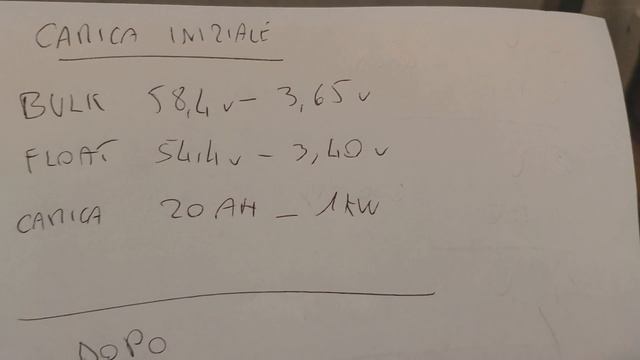 CARICA INIZIALE
BULK 58,4 v - 3,65 v
FLOAT 54,4 v - 3,40 v
CARICA 20 AH - 1 KW
DOPO